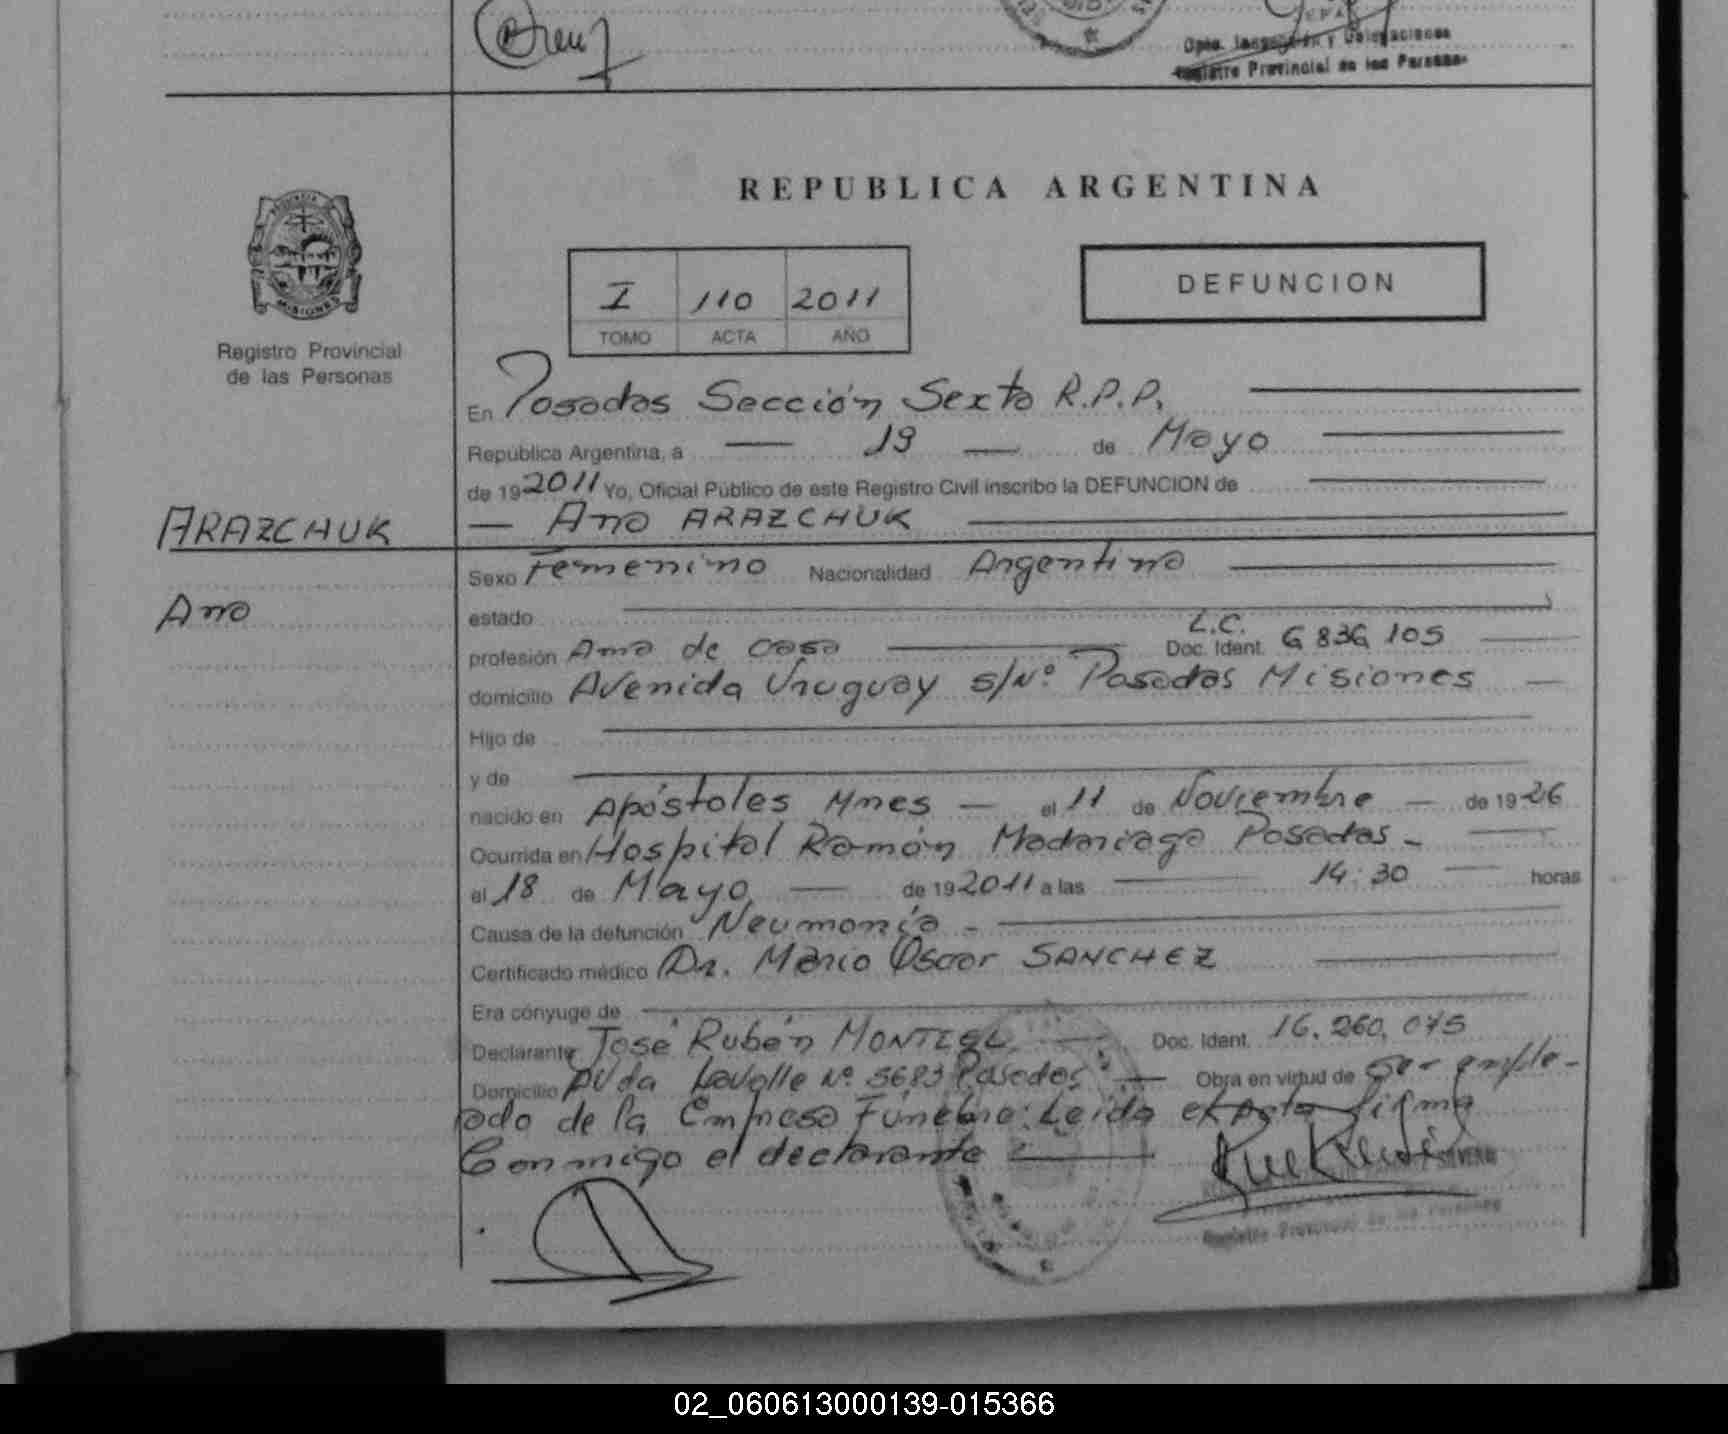 Dpto. Inspección y Delegaciones
Registro Provincial de las Personas
REPUBLICA ARGENTINA
I 110 2011
TOMO ACTA AÑO
DEFUNCION
MISIONES
Registro Provincial
de las Personas
En Posadas Sección Sexta R.P.P.
República Argentina, a 19 de Mayo
de 19 2011 Yo, Oficial Público de este Registro Civil inscribo la DEFUNCION de
ARAZCHUK
Ana ARAZCHUK
Ana
Sexo Femenino Nacionalidad Argentina
estado
profesión Ama de casa L.C. Doc. Ident. 6 836 105
domicilio Avenida Uruguay s/Nº Posadas Misiones
Hijo de
y de
nacido en Apóstoles Mnes el 11 de Noviembre de 19 26
Ocurrida en Hospital Ramón Madariaga Posadas
el 18 de Mayo de 19 2011 a las 14:30 horas
Causa de la defunción Neumonía
Certificado médico Dr. Mario Oscar SANCHEZ
Era cónyuge de
Declarante José Rubén MONTIEL Doc. Ident. 16.260.075
Domicilio Avda Lavalle Nº 5683 Posadas Obra en virtud de ser emple-
ado de la Empresa Fúnebre: Leída el Acta firma
Conmigo el declarante
Registro Provincial de las Personas
02_060613000139-015366